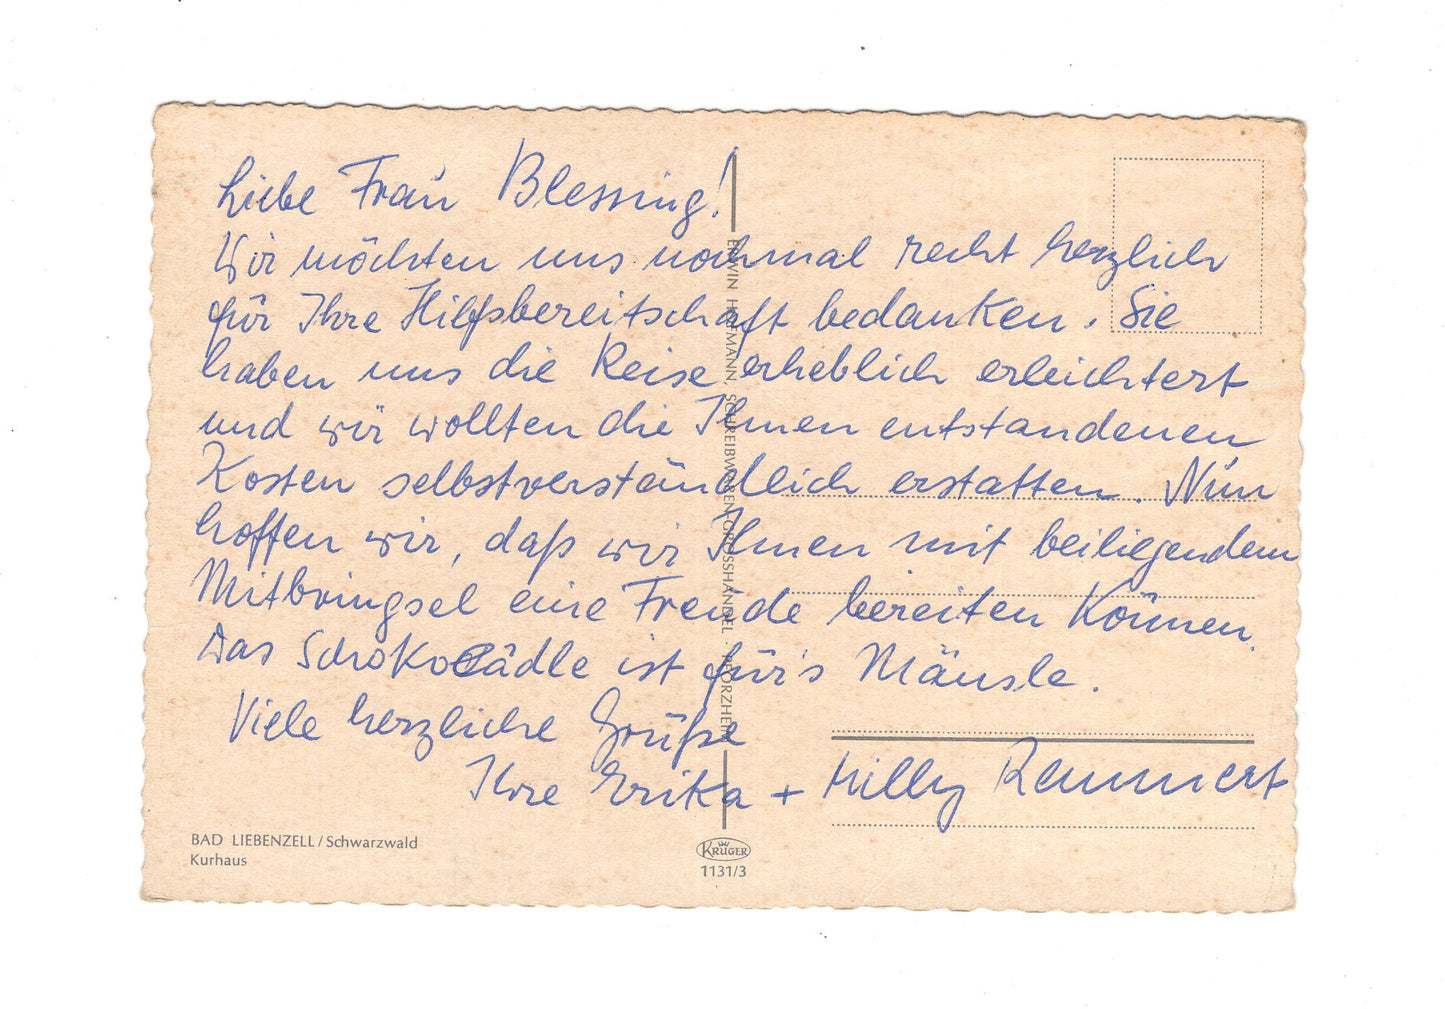 Liebe Frau Blessing!
Wir möchten uns nochmal recht herzlich
für Ihre Hilfsbereitschaft bedanken. Sie
haben uns die Reise erheblich erleichtert
und wir wollten die Ihnen entstandenen
Kosten selbstverständlich erstatten. Nun
hoffen wir, daß wir Ihnen mit beiliegendem
Mitbringsel eine Freude bereiten können.
Das Schokolädle ist für's Mäusle.
Viele herzliche Grüße
Ihre Erika + Willy Remmert
ERWIN HOFMANN, SCHREIBWAREN-GROSSHANDEL · PFORZHEIM
BAD LIEBENZELL/Schwarzwald
Kurhaus
KRÜGER
1131/3